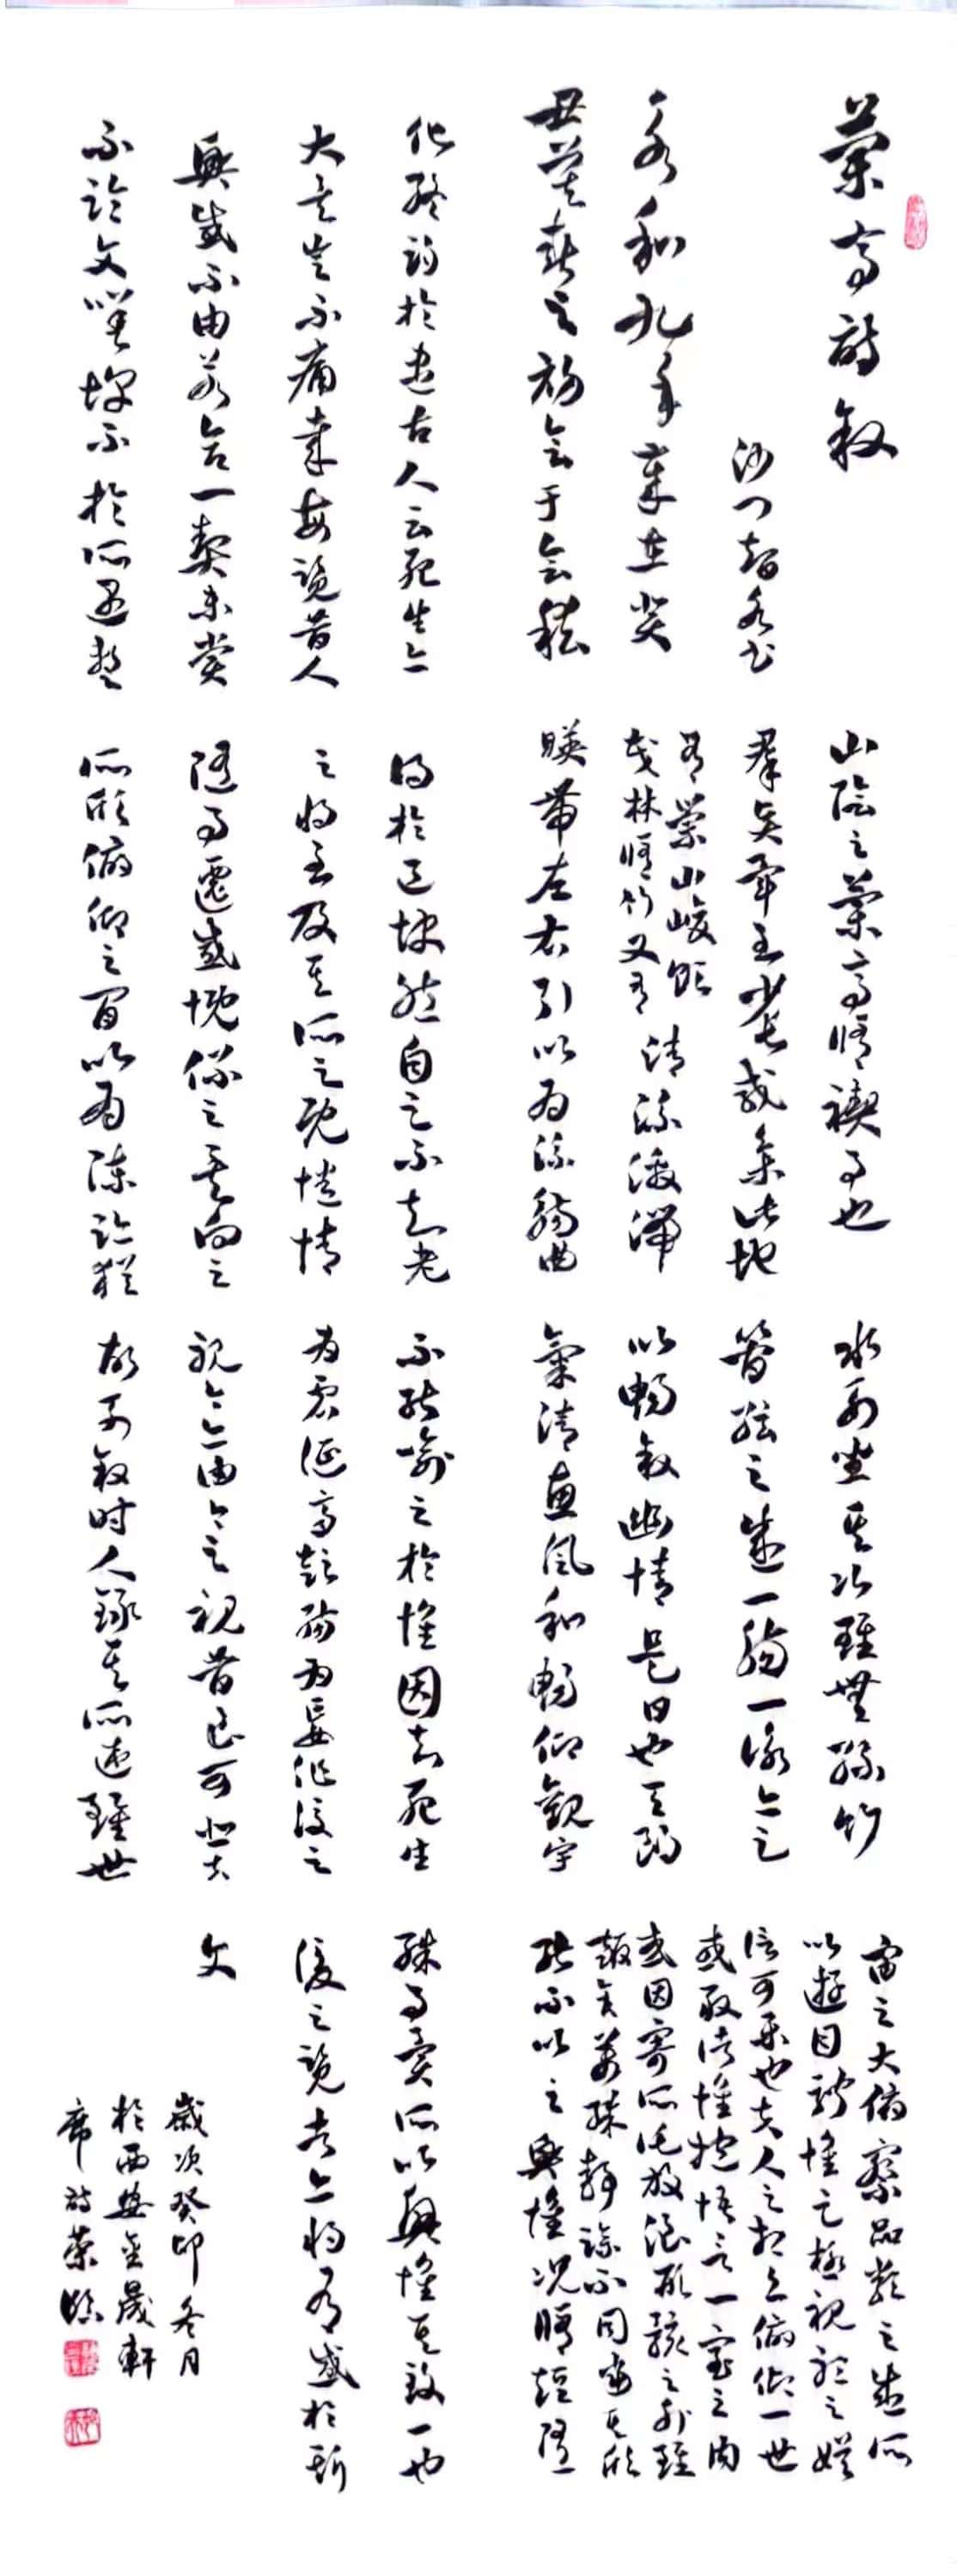 蘭亭詩叙
沙門智永書
永和九年歲在癸
丑暮春之初会于会稽
山陰之蘭亭脩禊事也
羣賢畢至少長咸集此地
有崇山峻領
茂林脩竹又有清流激湍
暎帶左右引以為流觴曲
水列坐其次雖無絲竹
管絃之盛一觴一詠亦足
以暢叙幽情是日也天朗
氣清惠風和暢仰觀宇
宙之大俯察品類之盛所
以遊目騁懷足極視聽之娛
信可樂也夫人之相與俯仰一世
或取諸懷抱悟言一室之內
或因寄所託放浪形骸之外雖
趣舍萬殊靜躁不同當其欣
能不以之興懷況脩短隨
化終期於盡古人云死生亦
大矣豈不痛哉每覽昔人
興感不由若合一契未嘗
不臨文嗟悼不於所遇暫
得於己怏然自足不知老
之將至及其所之既惓情
隨事遷感慨係之矣向之
所欣俯仰之間以為陳迹猶
不能喻之於懷固知死生
為虛誕齊彭殤為妄作後之
視今亦由今之視昔良可悲夫
故列叙時人錄其所述雖世
殊事異所以興懷其致一也
後之覽者亦將有感於斯
文
歲次癸卯冬月
於西安金晟軒
席詩榮臨